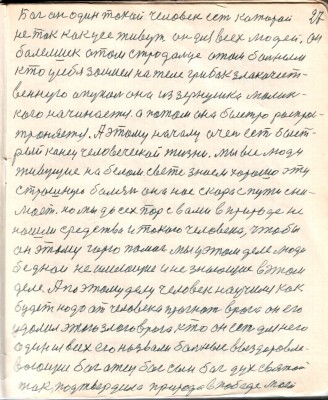 27
Бог он один такой человек ест каторай
не так как усе живут он дил всех людей, он
балеишик
кто у себя
веннуго апухал она из зернушка малик-
кого начинаиту. а патом она быстро распра-
троняиту. А этому началу очен ест быст-
рый канец человеческай жизни. мы все люди
живущие на белом свете знаем харашо эту
страшную балезн она нас скора с пути сни-
маит. но мы до сех пор с вами в природе не
нашли средства и такого человека, чтобы
он этаму горю памог мы у этом деле люди
бедныи не имеющие и не знающие в этом
деле А по этому делу человек научился как
будит надо от человека прагнат врага он его
удолил этаго злого врага кто он ест для него
один и всех его назвали балные выздоровле-
вающие бог отец бог сын бог дух святой
так подтвердила природа в победе моей